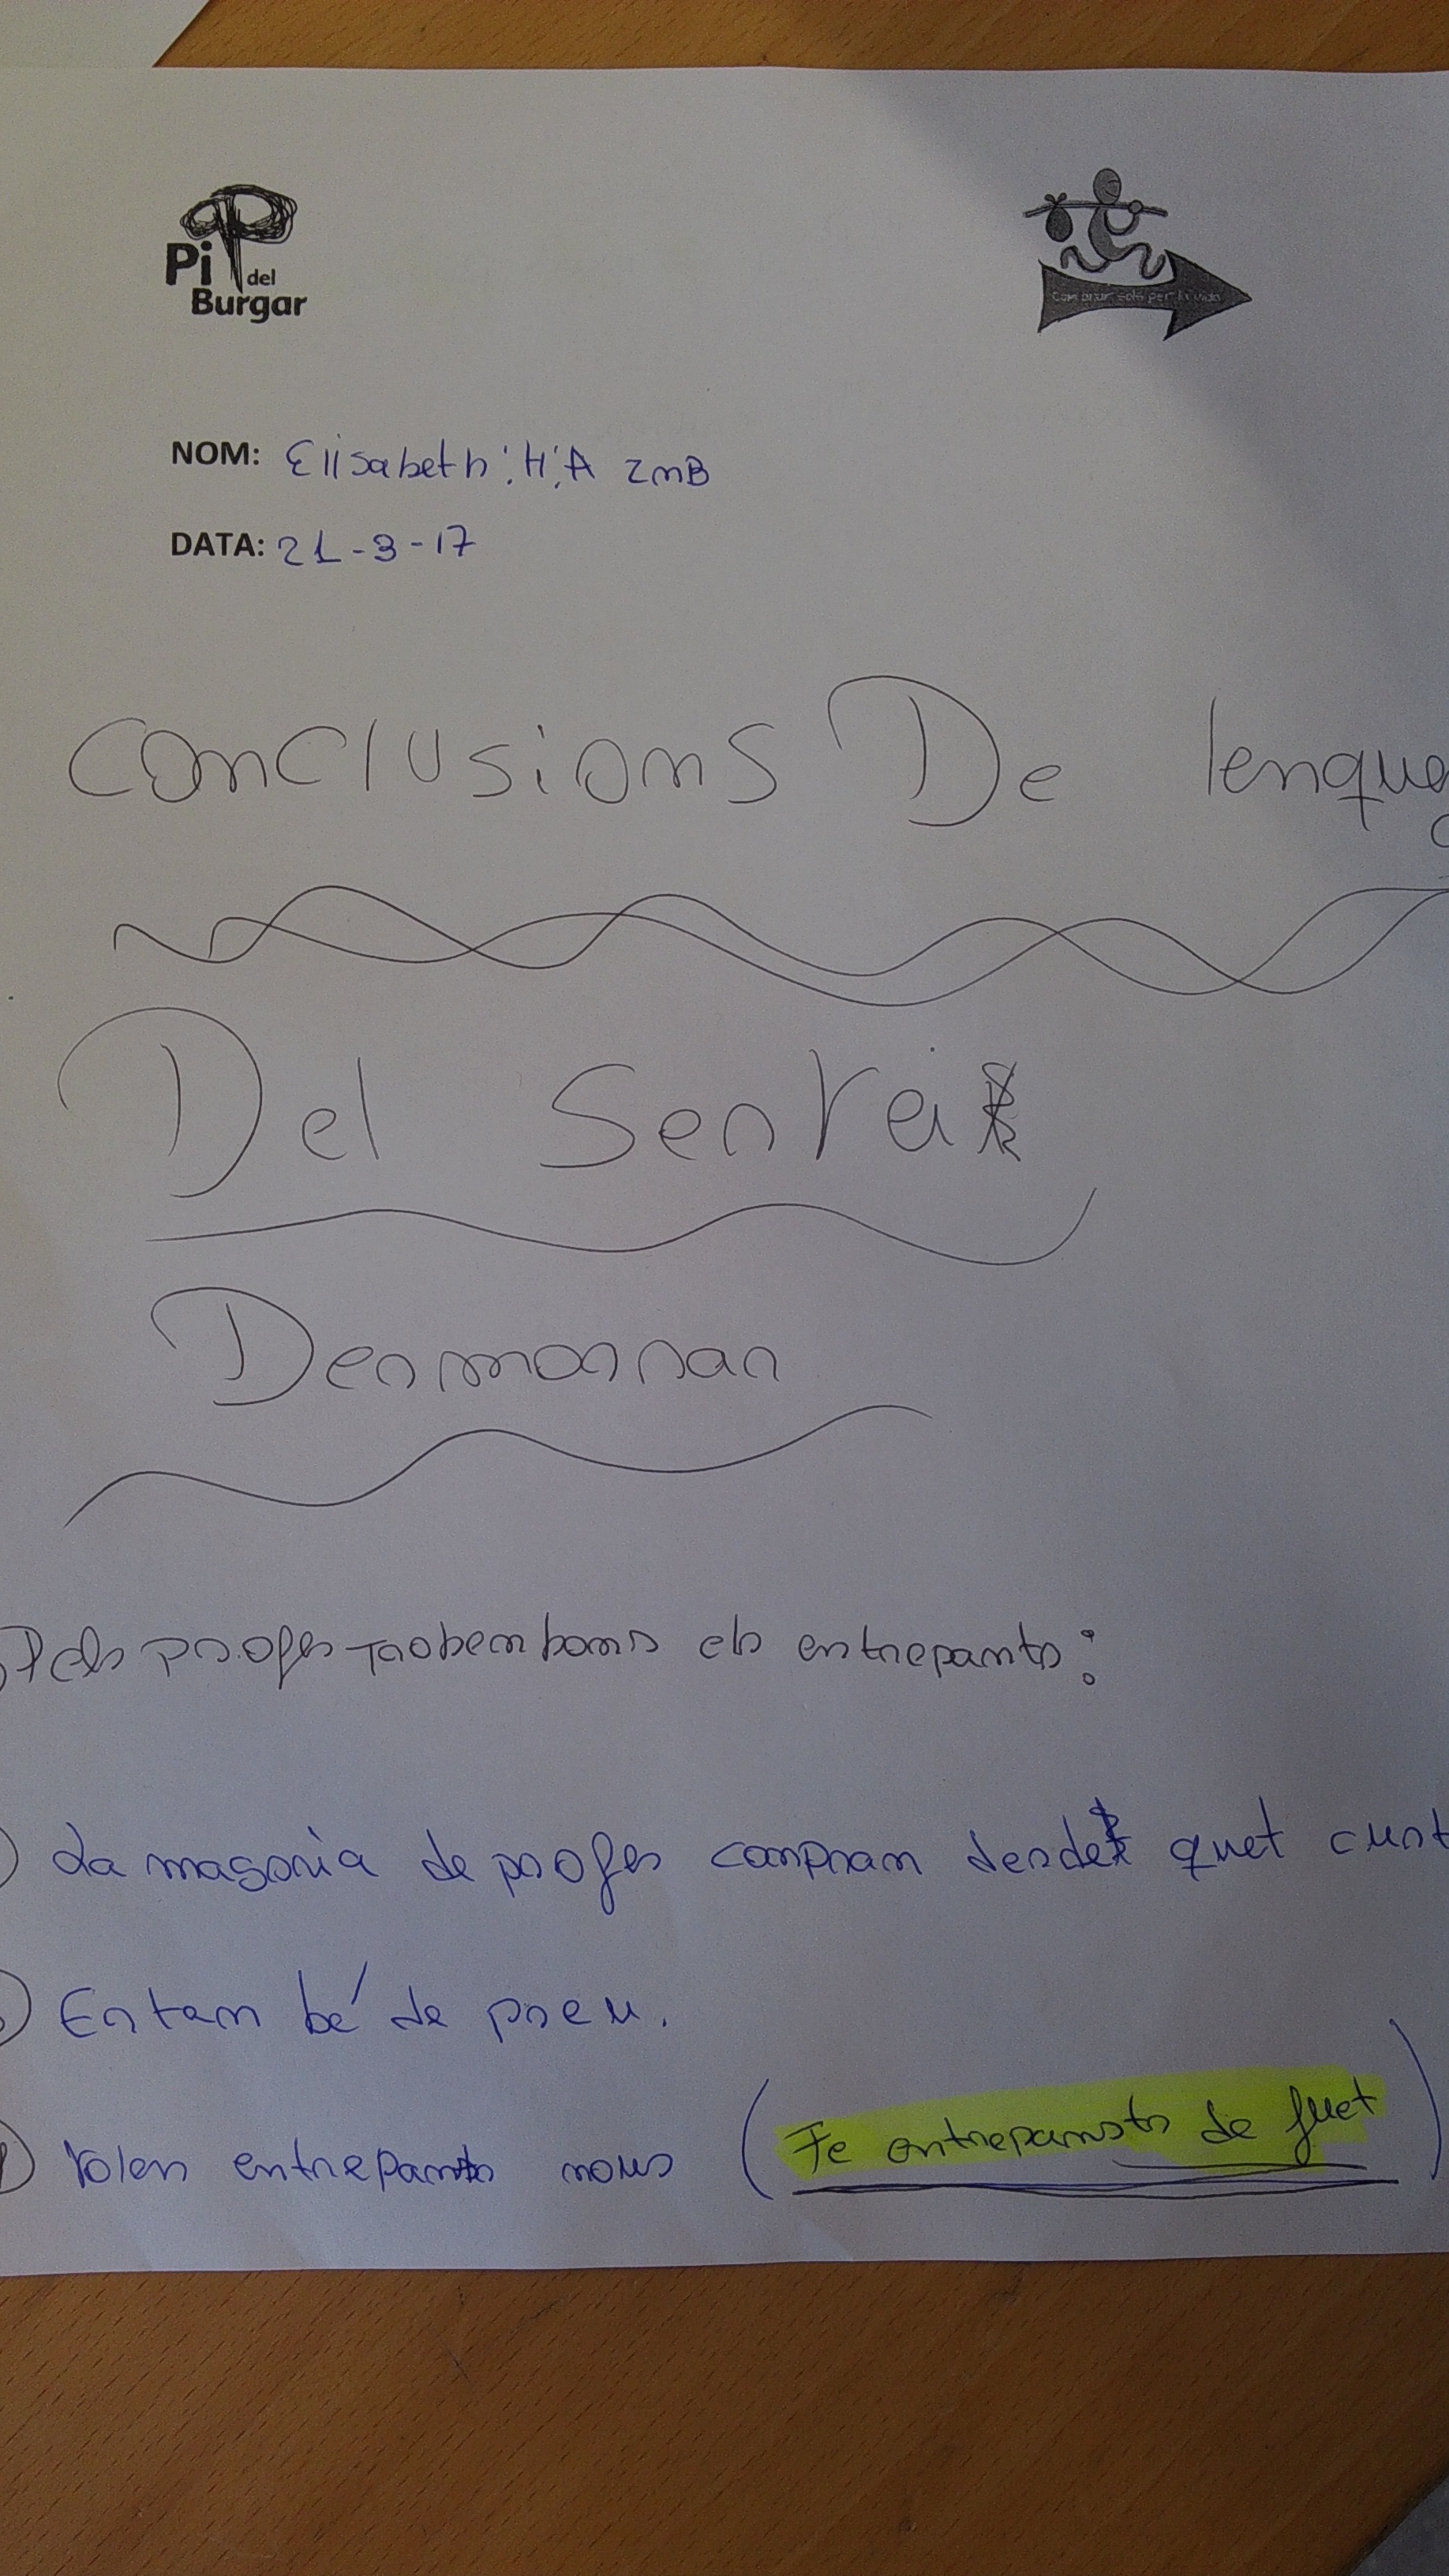 Pi del
Burgar
Caminar sols per la vida
NOM: Elisabeth.H.A 2nB
DATA: 21-3-17
Conclusions De lengua
Del Servei
Desmorsar
Pels profes Troben bons els entrepants:
La magoria de profes compran desde quet
En tam bé de preu.
Volen entrepants nous (Fe entrepansts de fuet)